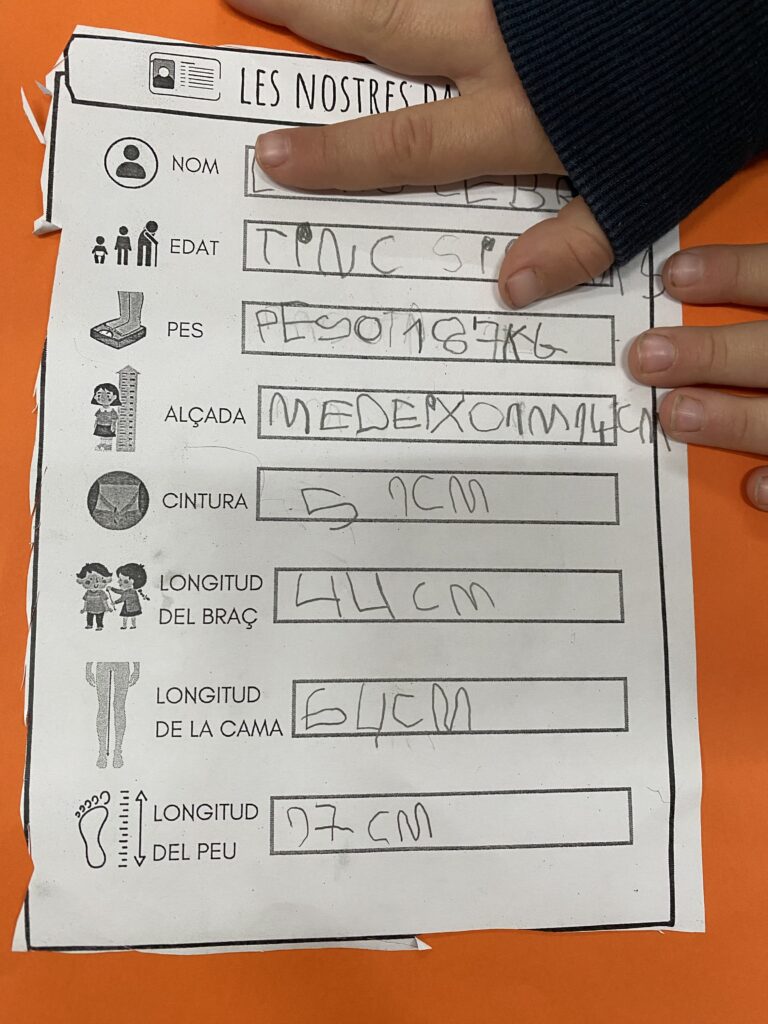 LES NOSTRES
NOM
EDAT TINC
PES PESO 187KG
ALÇADA MEDEIXO 1M14CM
CINTURA 51CM
LONGITUD
DEL BRAÇ 44 CM
LONGITUD
DE LA CAMA 64CM
LONGITUD
DEL PEU 17 CM